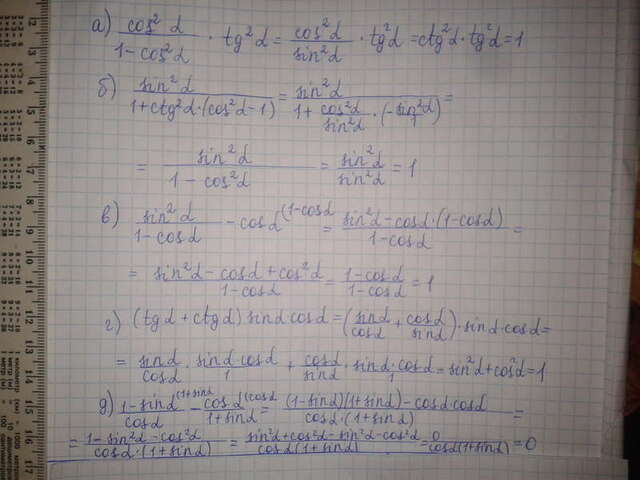 а) cos²α / (1 - cos²α) · tg²α = cos²α / sin²α · tg²α = ctg²α · tg²α = 1
б) sin²α / (1 + ctg²α · (cos²α - 1)) = sin²α / (1 + cos²α / sin²α · (- sin²α / 1)) =
= sin²α / (1 - cos²α) = sin²α / sin²α = 1
в) sin²α / (1 - cosα) - cosα (1 - cosα = (sin²α - cosα · (1 - cosα)) / (1 - cosα) =
= (sin²α - cosα + cos²α) / (1 - cosα) = (1 - cosα) / (1 - cosα) = 1
г) (tgα + ctgα) sinα cosα = (sinα / cosα + cosα / sinα) · sinα · cosα =
= sinα / cosα · sinα cosα / 1 + cosα / sinα · sinα · cosα / 1 = sin²α + cos²α = 1
д) (1 - sinα) / cosα (1 + sinα - cosα / (1 + sinα) (cosα = ((1 - sinα)(1 + sinα) - cosα cosα) / (cosα · (1 + sinα)) =
= (1 - sin²α - cos²α) / (cosα · (1 + sinα)) = (sin²α + cos²α - sin²α - cos²α) / (cosα (1 + sinα)) = 0 / (cosα (1 + sinα)) = 0